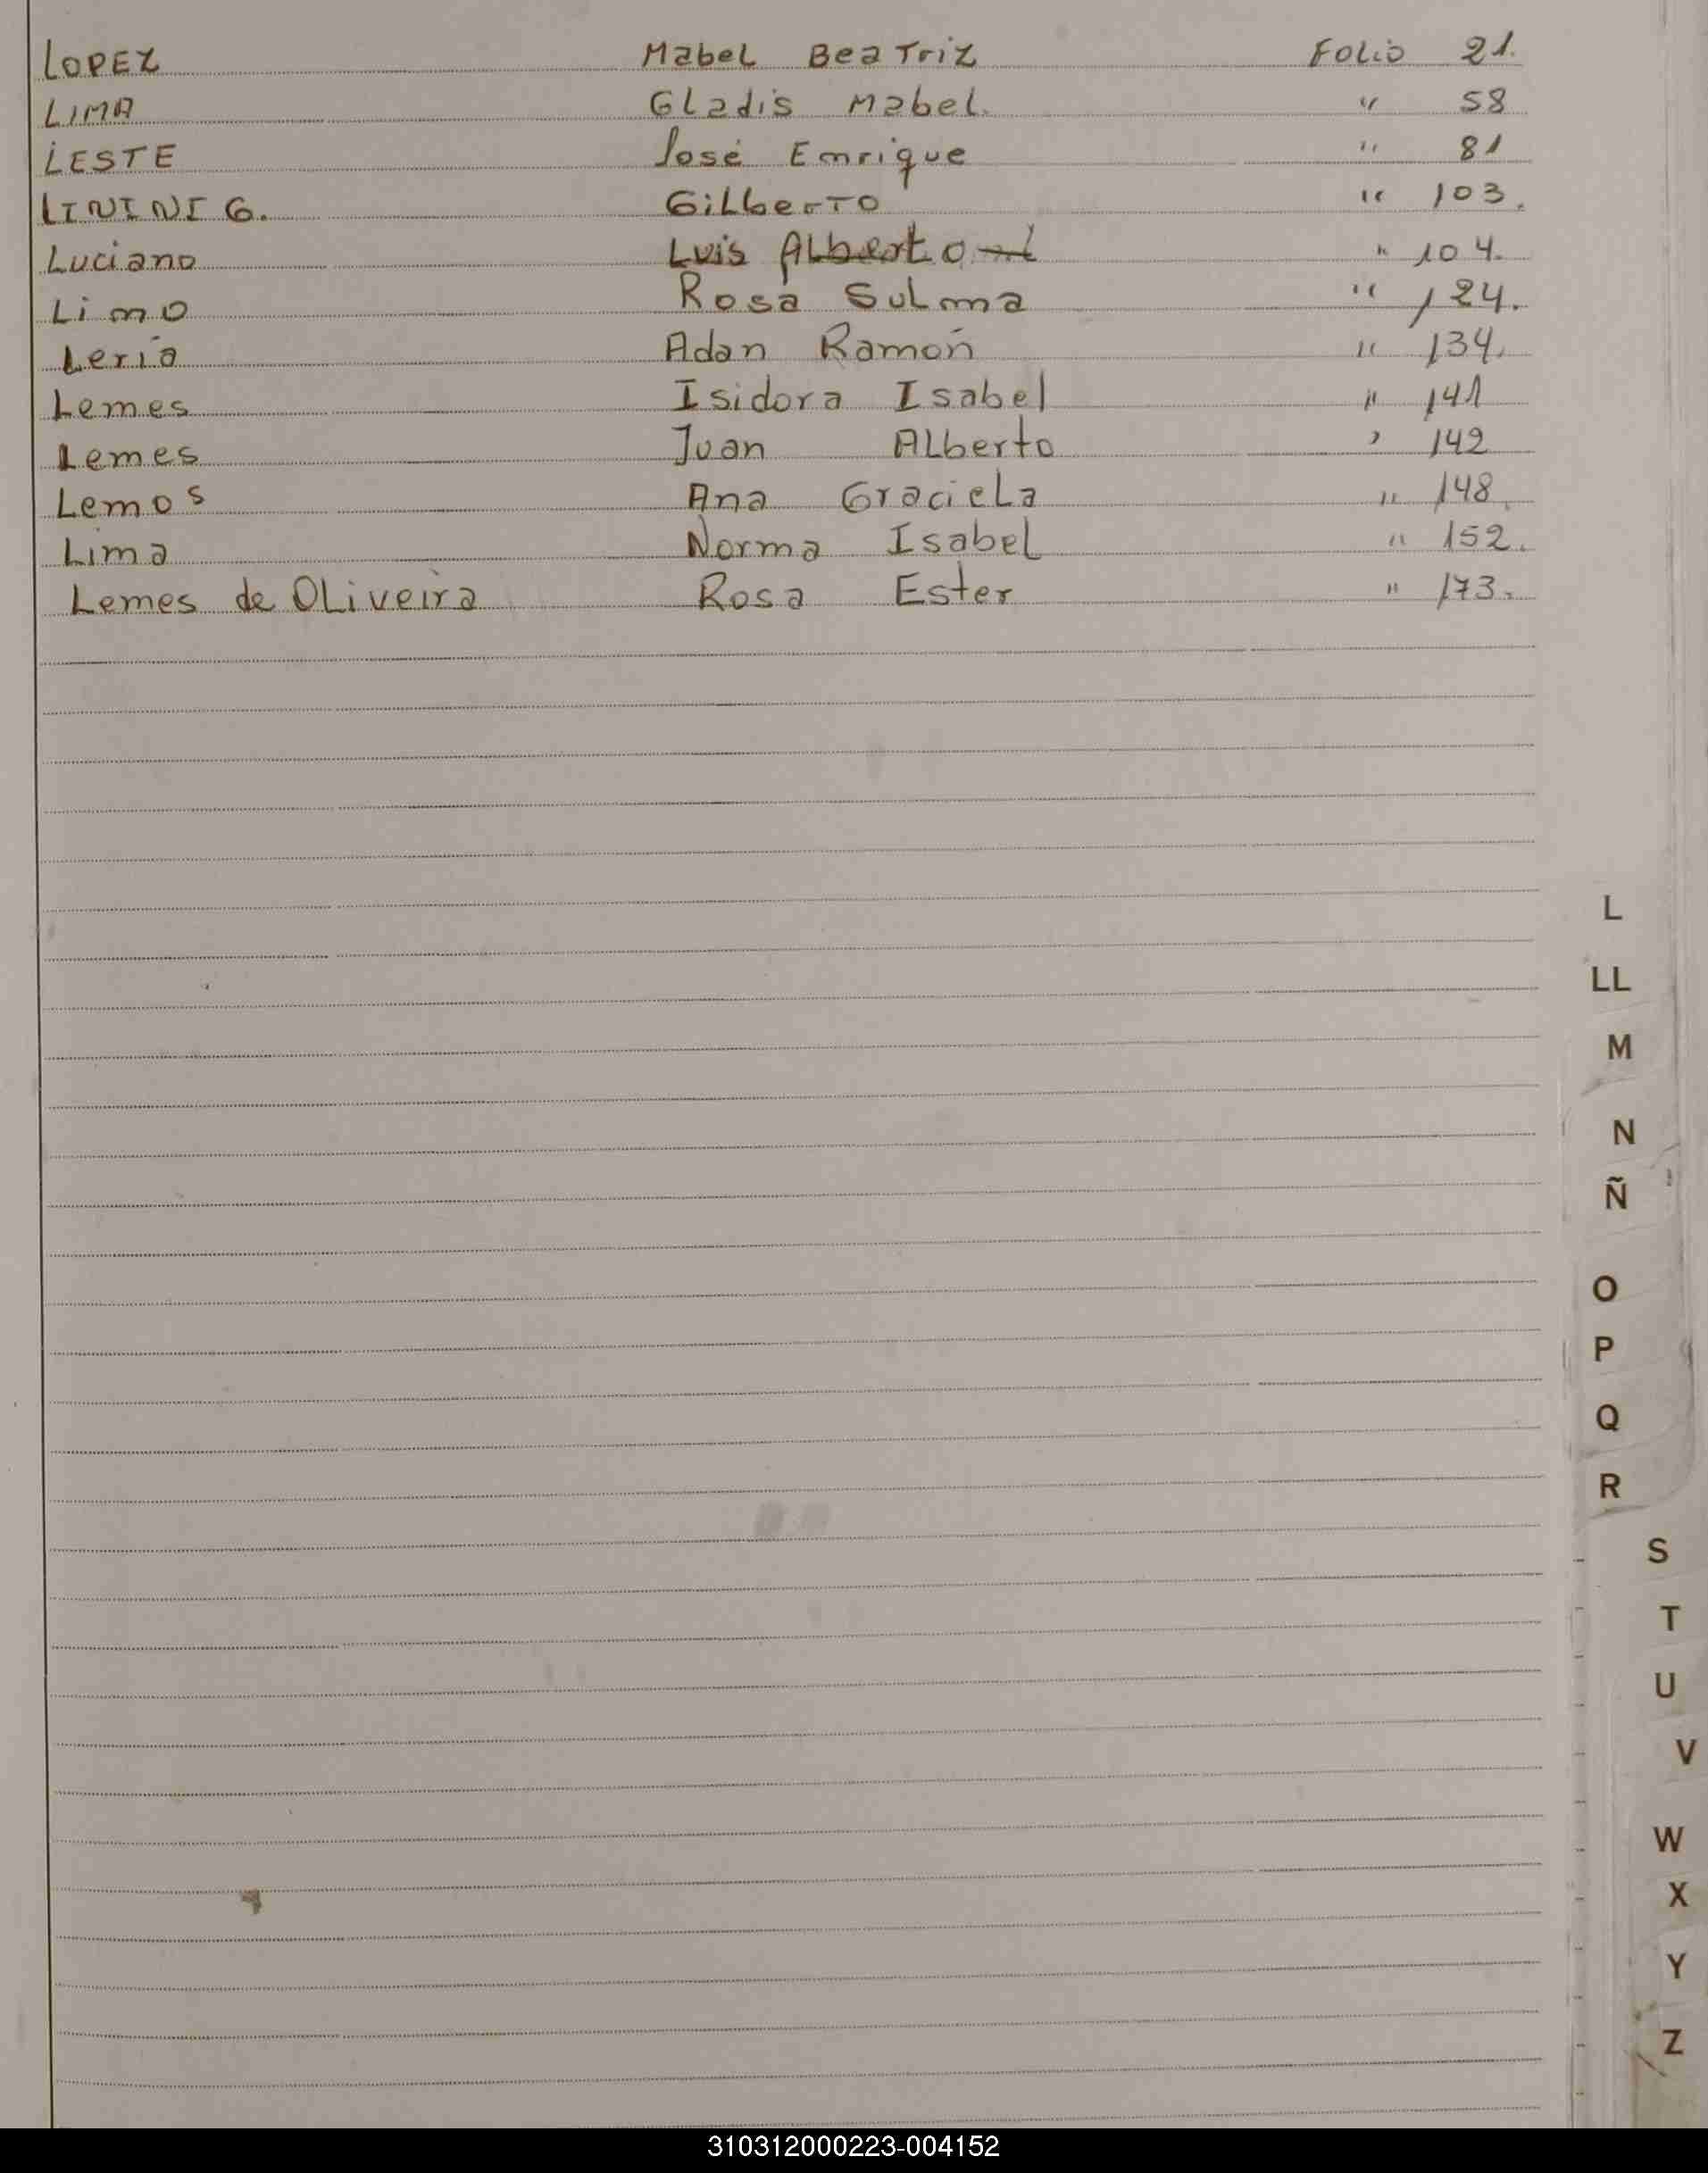 LOPEZ Mabel Beatriz Folio 21.
LIMA Gladis Mabel. " 58
LESTE José Enrique " 81
LININI G. Gilberto " 103.
Luciano Luis Alberto " 104.
Limo Rosa Sulma " 124.
Leria Adan Ramón " 134.
Lemes Isidora Isabel " 141
Lemes Juan Alberto " 142
Lemos Ana Graciela " 148.
Lima Norma Isabel " 152.
Lemes de Oliveira Rosa Ester " 173.
L
LL
M
N
Ñ
O
P
Q
R
S
T
U
V
W
X
Y
Z
310312000223-004152